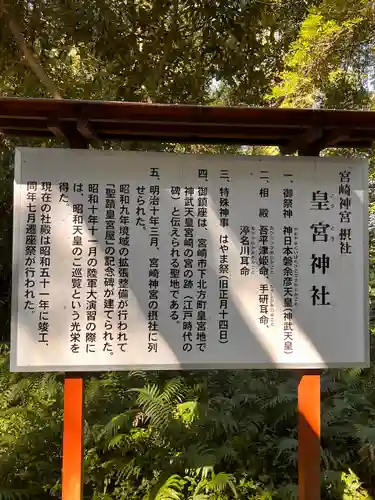 宮崎神宮 摂社
皇宮神社
こう ぐう
一、御祭神 神日本磐余彦天皇(神武天皇)
二、相殿 吾平津姫命、手研耳命、
渟名川耳命
三、特殊神事 はやま祭(旧正月十四日)
四、御鎮座は、宮崎市下北方町皇宮地で
神武天皇宮崎の宮の跡(江戸時代の
碑)と伝えられる聖地である。
五、明治十年三月、宮崎神宮の摂社に列
せられた。
昭和九年境域の拡張整備が行われて
「聖蹟皇宮屋」の記念碑が建てられた。
昭和十年十一月の陸軍大演習の際に
は、昭和天皇のご巡覧という光栄を
得た。
現在の社殿は昭和五十一年に竣工、
同年七月遷座祭が行われた。